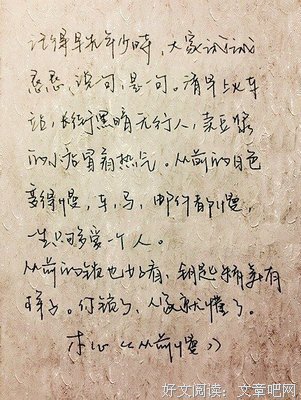 记得早先年少时，大家诚诚
恳恳，说一句，是一句。清早上火车
站，长街黑暗无行人，卖豆浆
的小店冒着热气。从前的日色
变得慢，车，马，邮件都慢，
一生只够爱一个人。
从前的锁也好看，钥匙精美有
样子。你锁了，人家就懂了。
木心《从前慢》
好文阅读：文章吧网